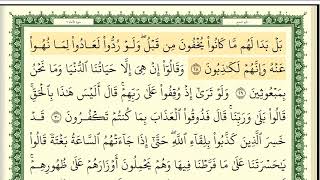 بَلْ بَدَا لَهُم مَّا كَانُوا۟ يُخْفُونَ مِن قَبْلُ ۖ وَلَوْ رُدُّوا۟ لَعَادُوا۟ لِمَا نُهُوا۟
عَنْهُ وَإِنَّهُمْ لَكَـٰذِبُونَ ٢٨ وَقَالُوٓا۟ إِنْ هِىَ إِلَّا حَيَاتُنَا ٱلدُّنْيَا وَمَا نَحْنُ
بِمَبْعُوثِينَ ٢٩ وَلَوْ تَرَىٰٓ إِذْ وُقِفُوا۟ عَلَىٰ رَبِّهِمْ ۚ قَالَ أَلَيْسَ هَـٰذَا بِٱلْحَقِّ ۚ
قَالُوا۟ بَلَىٰ وَرَبِّنَا ۚ قَالَ فَذُوقُوا۟ ٱلْعَذَابَ بِمَا كُنتُمْ تَكْفُرُونَ ٣٠ قَدْ
خَسِرَ ٱلَّذِينَ كَذَّبُوا۟ بِلِقَآءِ ٱللَّهِ ۖ حَتَّىٰٓ إِذَا جَآءَتْهُمُ ٱلسَّاعَةُ بَغْتَةً قَالُوا۟
يَـٰحَسْرَتَنَا عَلَىٰ مَا فَرَّطْنَا فِيهَا وَهُمْ يَحْمِلُونَ أَوْزَارَهُمْ عَلَىٰ ظُهُورِهِمْ ۚ